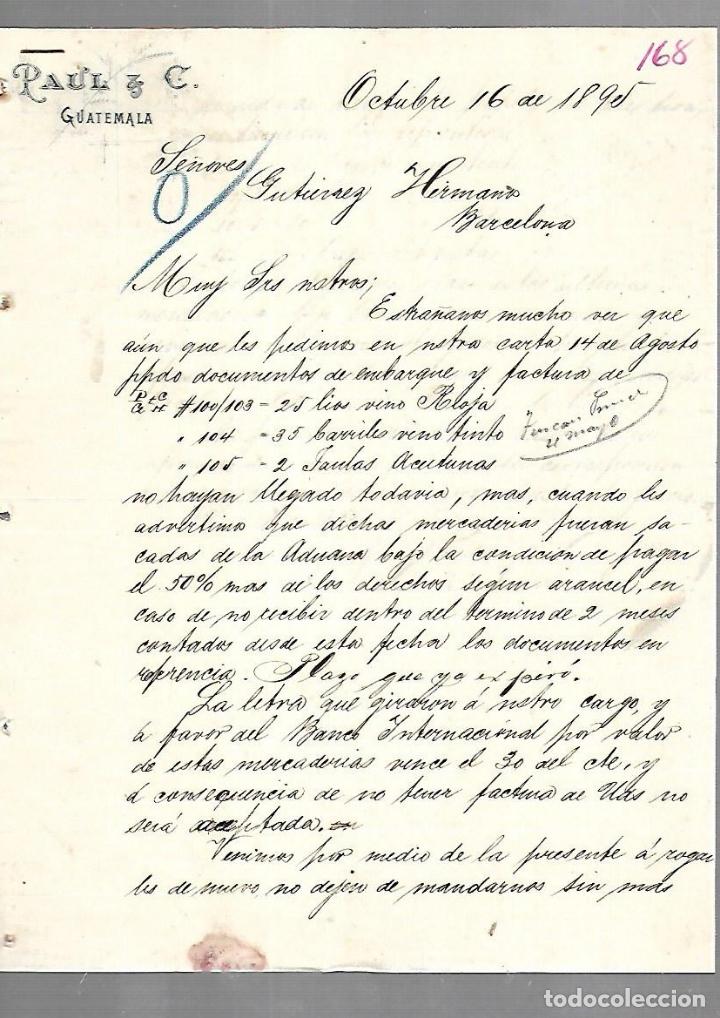 168
PAUL & C.
GUATEMALA
Octubre 16 de 1895
Señores
Gutierrez Hermano
Barcelona
Muy Srs nstros;
Estrañanos mucho ver que
aún que les pedimos en nstra carta 14 de Agosto
ppdo documentos de embarque y factura de
#100/103 = 25 lios vino Rioja
" 104 = 35 barriles vino tinto
" 105 = 2 Acetunas
no hayan llegado todavia, mas, cuando les
advertimos que dichas mercaderias fueran sa-
cadas de la Aduana bajo la condicion de pagar
el 50% mas de los derechos según arancel, en
caso de no recibir dentro del termino de 2 meses
contados desde esta fecha los documentos en
referencia. Plazo que ya expiró.
La letra que giraron á nstro cargo, y
a favor del Banco Internacional por valor
de estas mercaderias vence el 30 del cte, y
á consequencia de no tener factura de Uds no
será aceptada.
Venimos por medio de la presente á rogar
les de nuevo, no dejen de mandarnos sin mas
todocoleccion